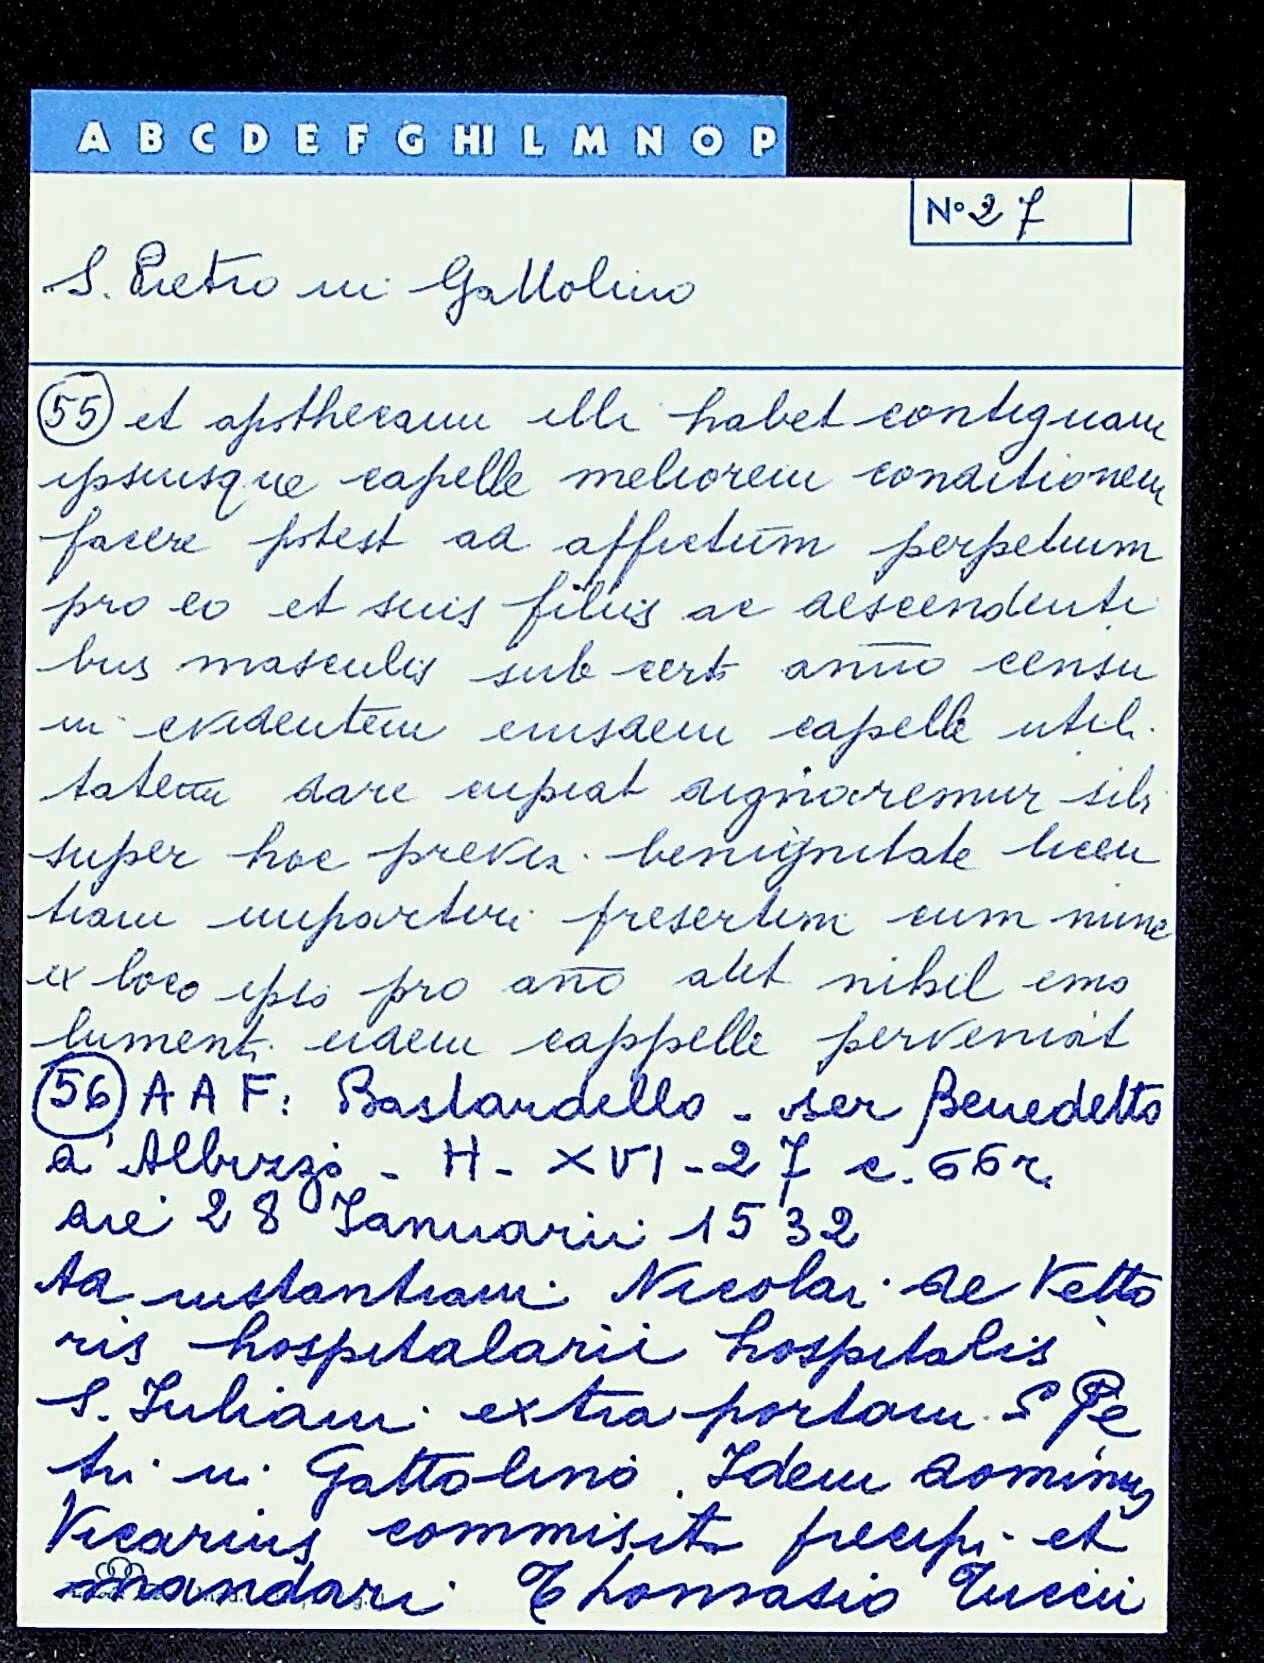 A B C D E F G HI L M N O P
N° 27
S. Pietro in Gattolino
55 et apothecam illi habet contiguam
ipsiusque capelle meliorem conditionem
facere potest ad affictum perpetuum
pro eo et suis filiis ac descendenti
bus masculis sub certo annuo censu
in evidentem eiusdem capelle utili
tatem dare cupiat dignaremur sibi
super hoc benignitate licen
tiam impartiri presertim cum nunc
ex loco ipso pro año nihil emo
lumenti eidem cappelle perveniat
56 A A F: Bastardello - ser Benedetto
d'Albizzo - H - XVI - 27 c. 66 r.
die 28 Januarii 1532
Ad instantiam Nicolai de Vetto
ris hospitalarii hospitalis
S. Juliani extra portam S Pe
tri in Gattolino. Idem dominus
Vicarius commisit precipi et
mandari Thomasio Tuccii